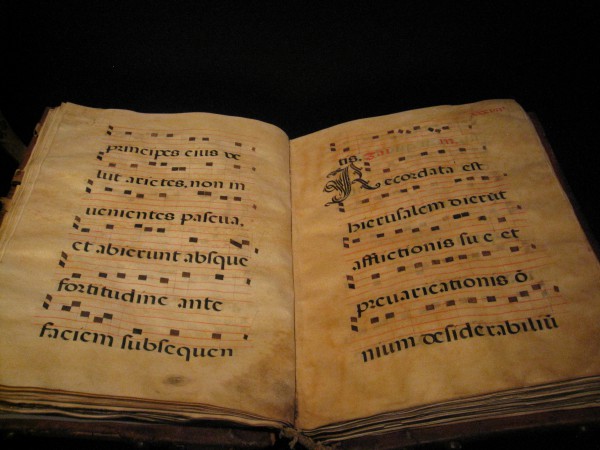 principes eius ve
lut arietes, non in
uenientes pascua,
et abierunt absque
fortitudine ante
faciem subsequen
tis.
Recordata est
hierusalem dierũ
afflictionis suę et
preuaricationis õ
nium desiderabiliũ